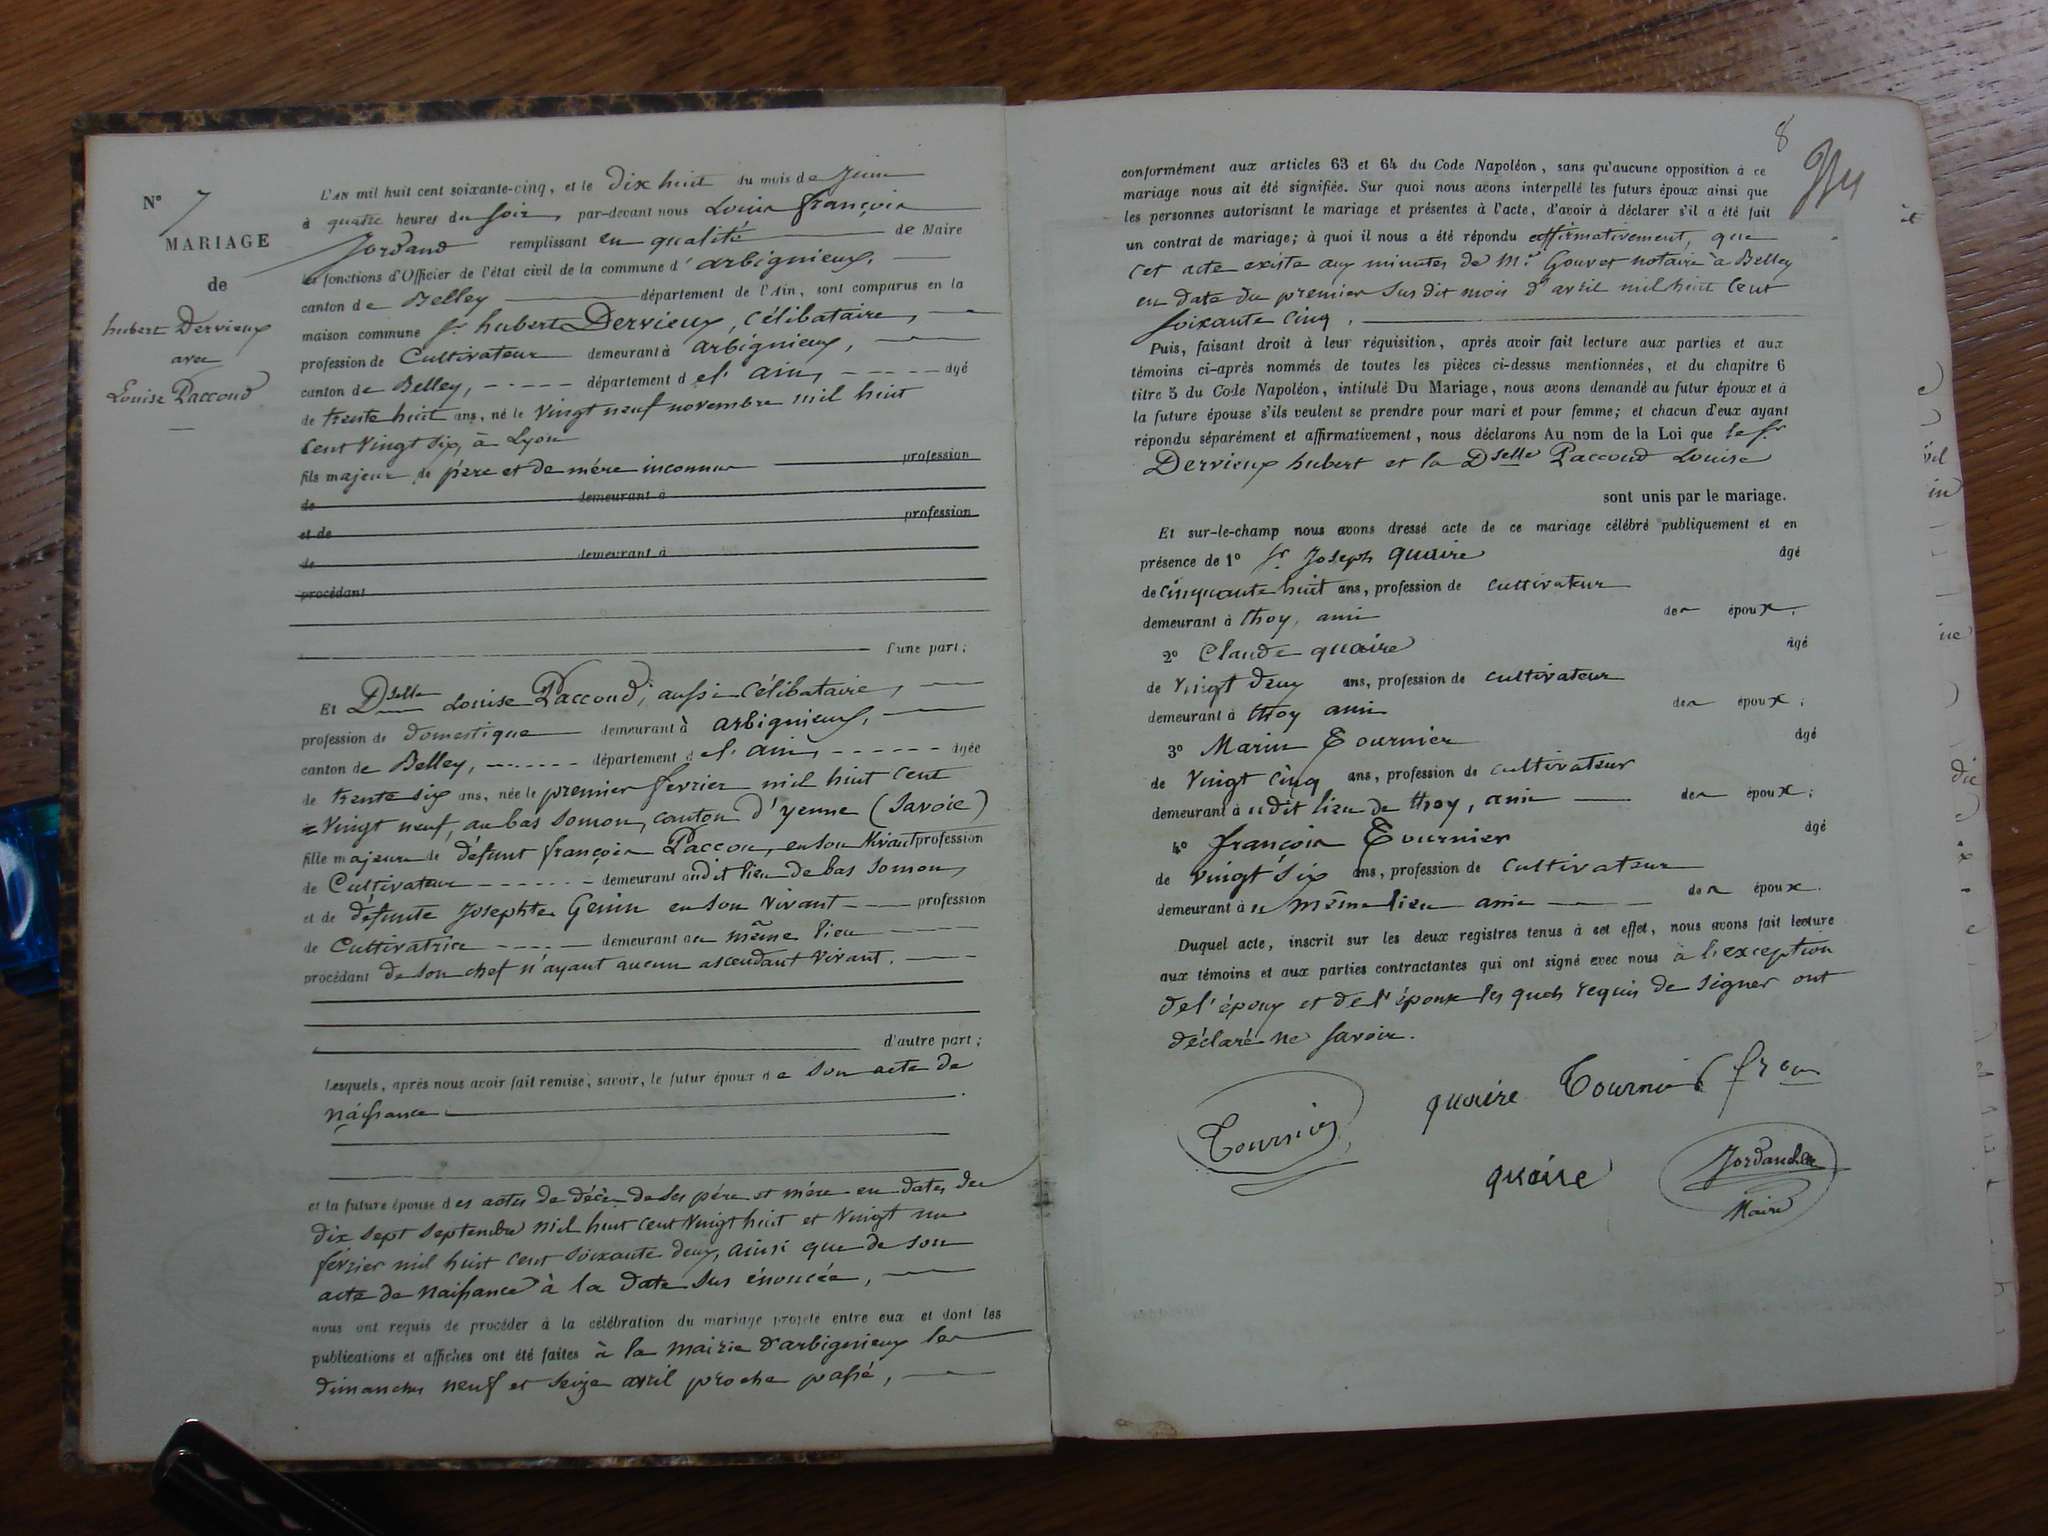 N° 7
MARIAGE
de
hubert Dervieux
avec
Louise Paccoud
L'AN mil huit cent soixante-cinq, et le dix huit du mois de Juin
à quatre heures du soir, par-devant nous Louis françois
Jordand remplissant en qualité de Maire
les fonctions d'Officier de l'état civil de la commune d'arbignieux,
canton de Belley département de l'Ain, sont comparus en la
maison commune Sr. hubert Dervieux, célibataire,
profession de Cultivateur demeurant à arbignieux,
canton de Belley, département de l'ain, âgé
de trente huit ans, né le vingt neuf novembre mil huit
cent vingt six, à Lyon
fils majeur de père et de mère inconnus profession
de demeurant à
et de profession
de demeurant à
procédant
d'une part;
Et Dselle Louise Paccoud, aussi célibataire,
profession de domestique demeurant à arbignieux,
canton de Belley, département de l'ain, âgée
de trente six ans, née le premier février mil huit cent
vingt neuf, au bas somon, canton d'yenne (Savoie)
fille majeure de défunt françois Paccou, en son vivant profession
de Cultivateur demeurant audit lieu de bas somon,
et de défunte Josephte Génin en son vivant profession
de Cultivatrice demeurant au même lieu
procédant de son chef n'ayant aucun ascendant vivant.
d'autre part;
Lesquels, après nous avoir fait remise, savoir, le futur époux de son acte de
naissance
et la future épouse des actes de décès de ses père et mère en dates des
dix sept septembre mil huit cent vingt huit et vingt un
février mil huit cent soixante deux, ainsi que de son
acte de naissance à la date sus énoncée,
nous ont requis de procéder à la célébration du mariage projeté entre eux et dont les
publications et affiches ont été faites à la mairie d'arbignieux les
dimanches neuf et seize avril proche passé,
8
conformément aux articles 63 et 64 du Code Napoléon, sans qu'aucune opposition à ce
mariage nous ait été signifiée. Sur quoi nous avons interpellé les futurs époux ainsi que
les personnes autorisant le mariage et présentes à l'acte, d'avoir à déclarer s'il a été fait
un contrat de mariage; à quoi il nous a été répondu affirmativement, que
cet acte existe aux minutes de Me. Gouvet notaire à Belley
en date du premier sus dit mois d'avril mil huit cent
soixante cinq.
Puis, faisant droit à leur réquisition, après avoir fait lecture aux parties et aux
témoins ci-après nommés de toutes les pièces ci-dessus mentionnées, et du chapitre 6
titre 5 du Code Napoléon, intitulé Du Mariage, nous avons demandé au futur époux et à
la future épouse s'ils veulent se prendre pour mari et pour femme; et chacun d'eux ayant
répondu séparément et affirmativement, nous déclarons Au nom de la Loi que le Sr
Dervieux hubert et la Dselle Paccoud Louise
sont unis par le mariage.
Et sur-le-champ nous avons dressé acte de ce mariage célébré publiquement et en
présence de 1° Sr Joseph quaire âgé
de cinquante huit ans, profession de cultivateur
demeurant à thoy, ami des époux.
2° Claude quaire âgé
de vingt deux ans, profession de cultivateur
demeurant à thoy ami des époux;
3° Marin Tournier âgé
de vingt cinq ans, profession de cultivateur
demeurant audit lieu de thoy, ami des époux;
4° françois Tournier âgé
de vingt six ans, profession de cultivateur
demeurant au même lieu ami des époux.
Duquel acte, inscrit sur les deux registres tenus à cet effet, nous avons fait lecture
aux témoins et aux parties contractantes qui ont signé avec nous à l'exception
de l'époux et de l'épouse les quels requis de signer ont
déclaré ne savoir.
quaire Tournier
Tournier
quaire Jordand
Maire